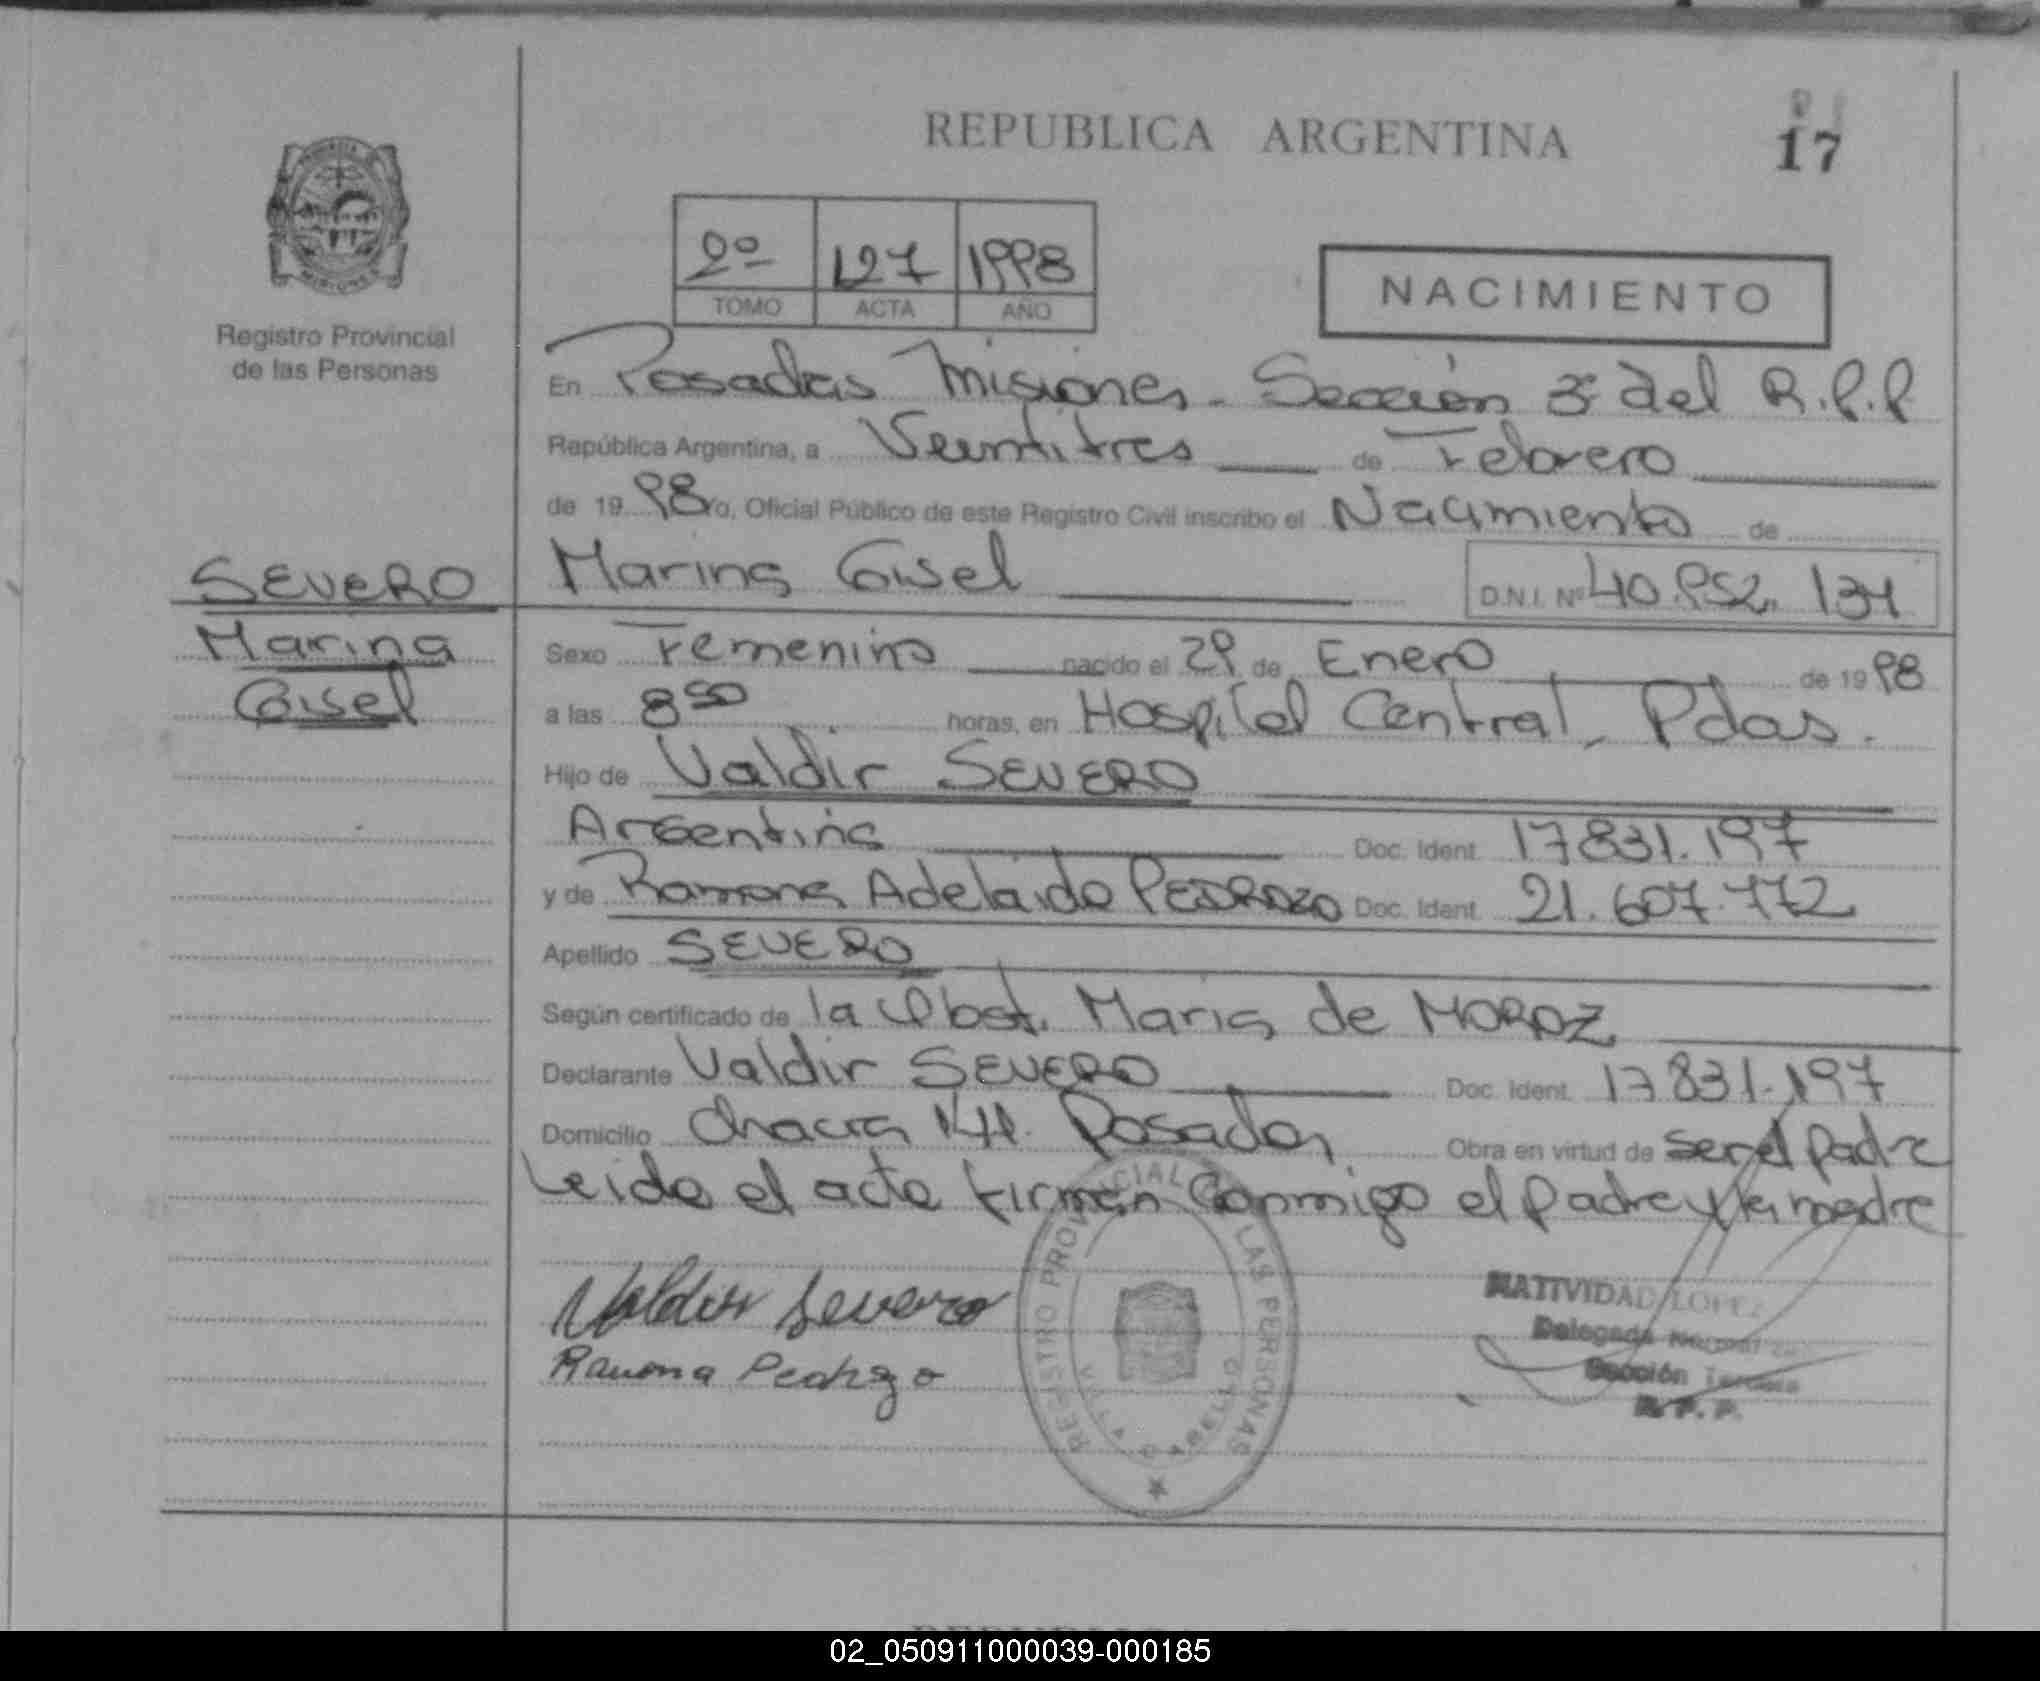 REPUBLICA ARGENTINA
17
Registro Provincial
de las Personas
2º 127 1998
TOMO ACTA AÑO
NACIMIENTO
En Posadas Misiones - Sección 3ª del R.P.P
República Argentina, a Veintitres de Febrero
de 1998 Yo, Oficial Público de este Registro Civil inscribo el Nacimiento de
SEVERO
Marina
Gisel
Marina Gisel D.N.I. Nº 40.952.134
Sexo Femenino nacido el 29 de Enero de 1998
a las 8 50 horas, en Hospital Central, Pdas.
Hijo de Valdir SEVERO
Argentina Doc. Ident. 17831.197
y de Ramona Adelaida PEDROZO Doc. Ident. 21.607.772
Apellido SEVERO
Según certificado de la Obst. Maria de MOROZ
Declarante Valdir SEVERO Doc. Ident. 17831.197
Domicilio Chacra Posadas Obra en virtud de ser el padre
Leida el acta firman conmigo el padre y la madre
Valdir Severo
Ramona Pedrozo
REGISTRO PROVINCIAL DE LAS PERSONAS
VILLA CABELLO
NATIVIDAD LOPEZ
Delegada
Sección Tercera
R. P. P.
02_050911000039-000185